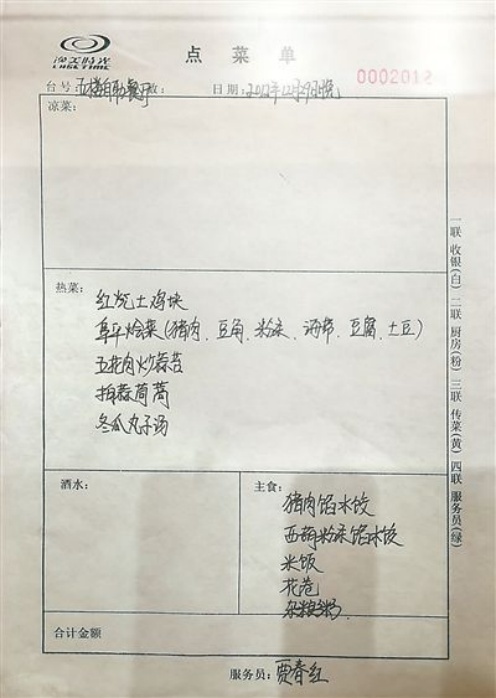 渔美时光
LAGETIME
点菜单
0002012
台号:五楼自助餐厅 数: 日期:2012年12月29日晚
凉菜:
热菜:
红烧土鸡块
阜平烩菜(猪肉、豆角、粉条、海带、豆腐、土豆)
五花肉炒蒜苔
拍蒜茼蒿
冬瓜丸子汤
酒水:
主食:
猪肉馅水饺
西葫粉条馅水饺
米饭
花卷
杂粮粥
合计金额
服务员:贾春红
一联 收银(白) 二联 厨房(粉) 三联 传菜(黄) 四联 服务员(绿)